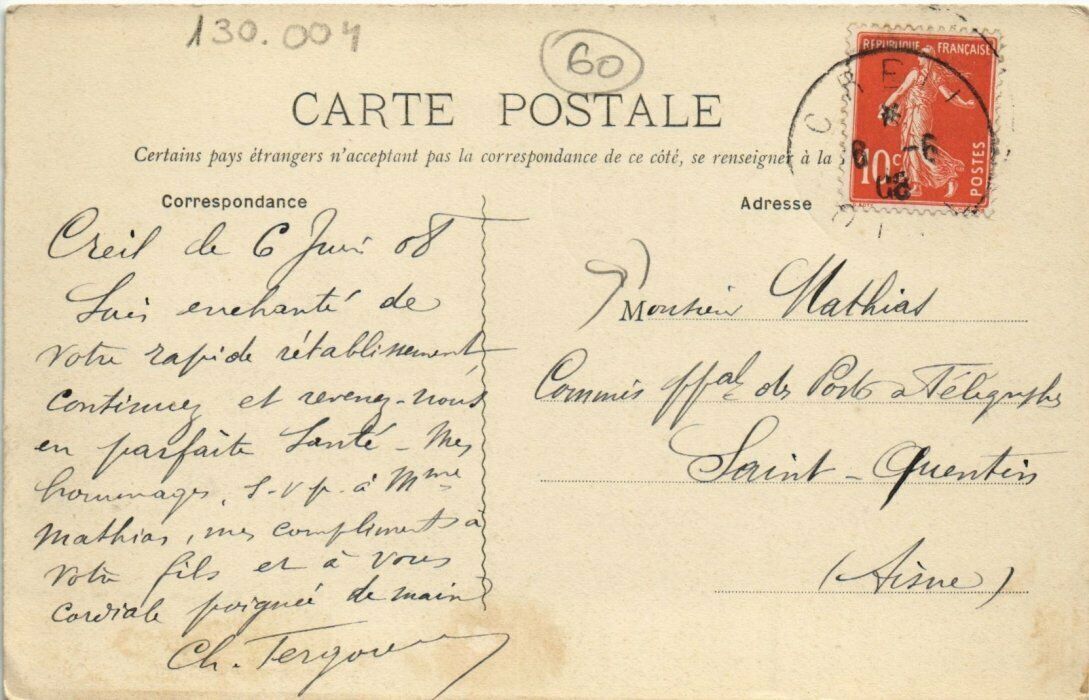 130.004
60
CARTE POSTALE
Certains pays étrangers n'acceptant pas la correspondance de ce côté, se renseigner à la
RÉPUBLIQUE FRANÇAISE
10c
POSTES
CREIL
6 -6
08
Correspondance
Creil le 6 Juin 08
Suis enchanté de
votre rapide rétablissement
continuez et revenez-nous
en parfaite santé - Mes
hommages, s.v.p. à Mme
Mathias, mes compliments à
votre fils et à vous
cordiale poignée de main
Ch.
Adresse
Monsieur Mathias
Commis ppal des Postes & Télégraphes
Saint-Quentin
(Aisne)